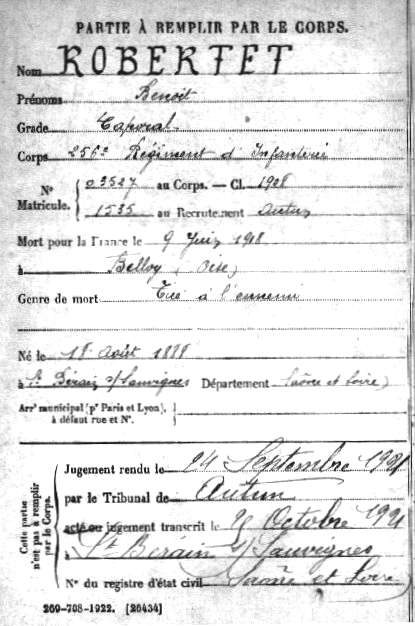 PARTIE À REMPLIR PAR LE CORPS.
Nom ROBERTET
Prénoms Benoit
Grade Caporal
Corps 256e Régiment d'Infanterie
N° Matricule. 03527 au Corps. — Cl. 1908
1535 au Recrutement Autun
Mort pour la France le 9 Juin 1918
à Belloy (Oise)
Genre de mort Tué à l'ennemi
Né le 18 Août 1888
à St Bérain s/Sauvignes Département Saône et Loire)
Arrt municipal (pr Paris et Lyon),
à défaut rue et N°.
Cette partie
n'est pas à remplir
par le Corps.
Jugement rendu le 24 Septembre 1921
par le Tribunal de Autun
acte ou jugement transcrit le Octobre 1921
à St Bérain s/Sauvignes
N° du registre d'état civil Saône et Loire
269-708-1922. [26434]